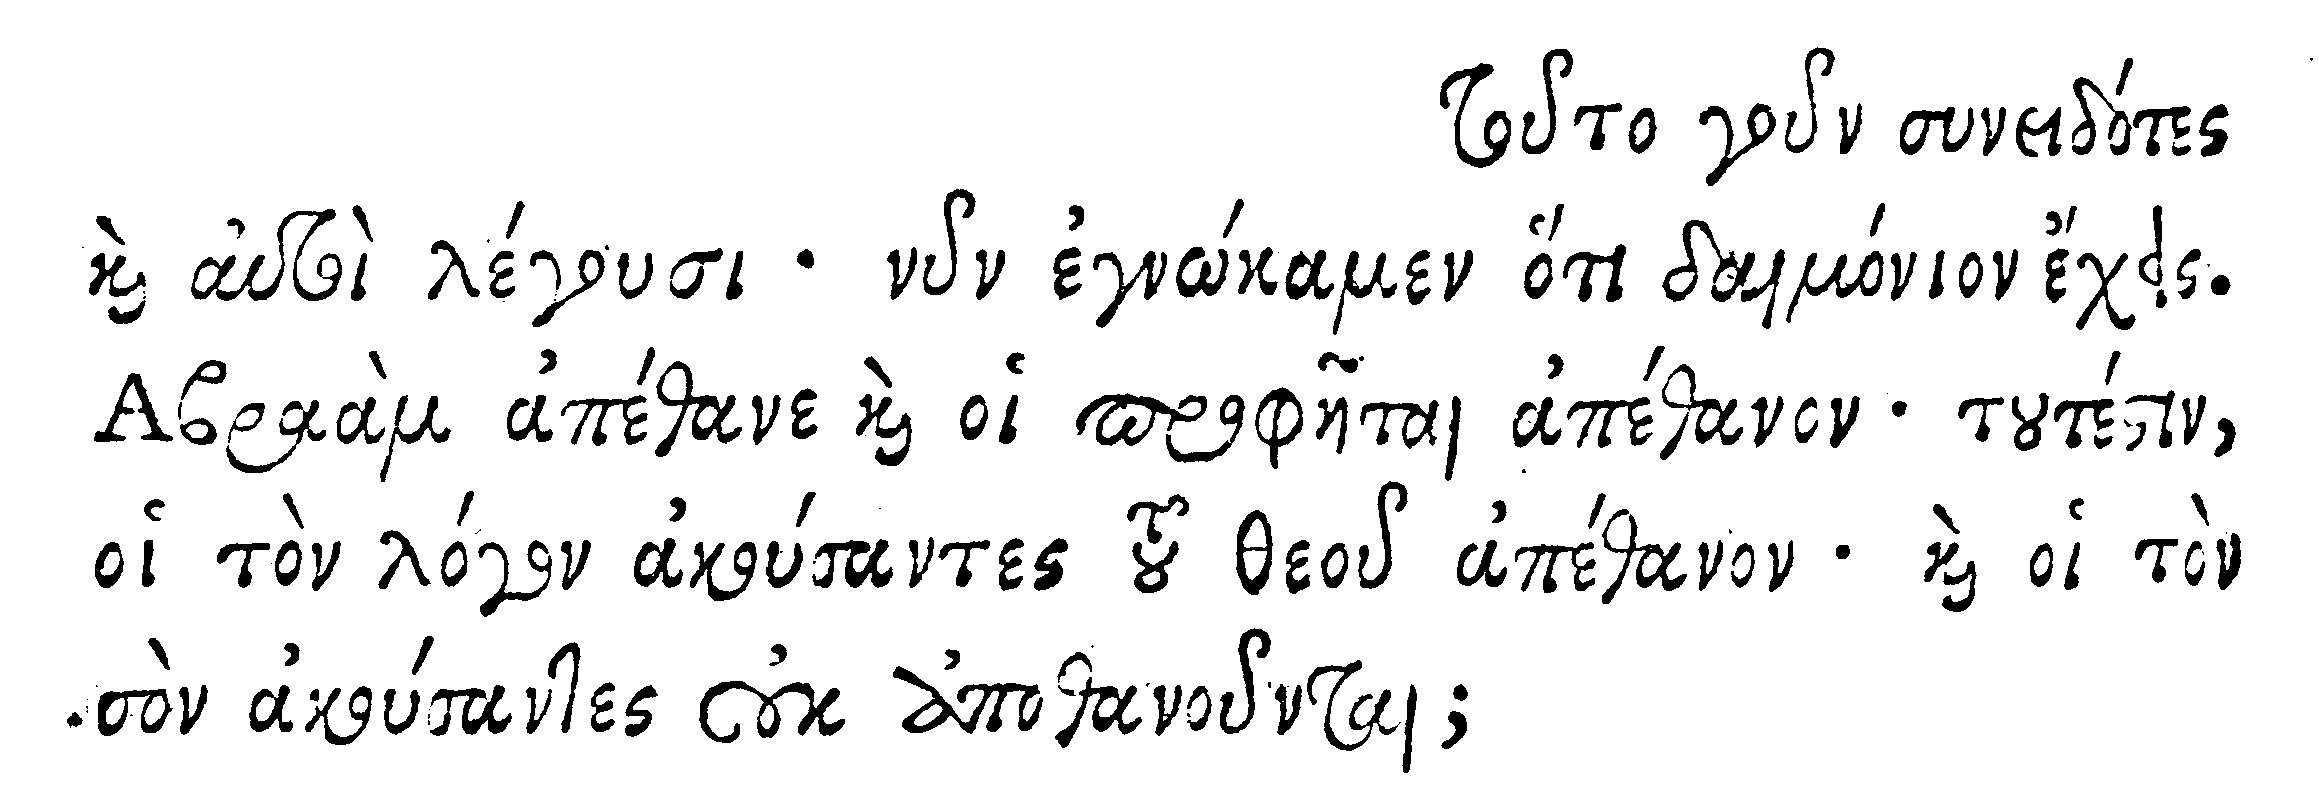 τοῦτο γοῦν συνειδότες
καὶ αὐτοὶ λέγουσι · νῦν ἐγνώκαμεν ὅτι δαιμόνιον ἔχεις.
Αβραὰμ ἀπέθανε καὶ οἱ προφῆται ἀπέθανον · τουτέστιν,
οἱ τὸν λόγον ἀκούσαντες τοῦ θεοῦ ἀπέθανον · καὶ οἱ τὸν
σὸν ἀκούσαντες οὐκ ἀποθανοῦνται;